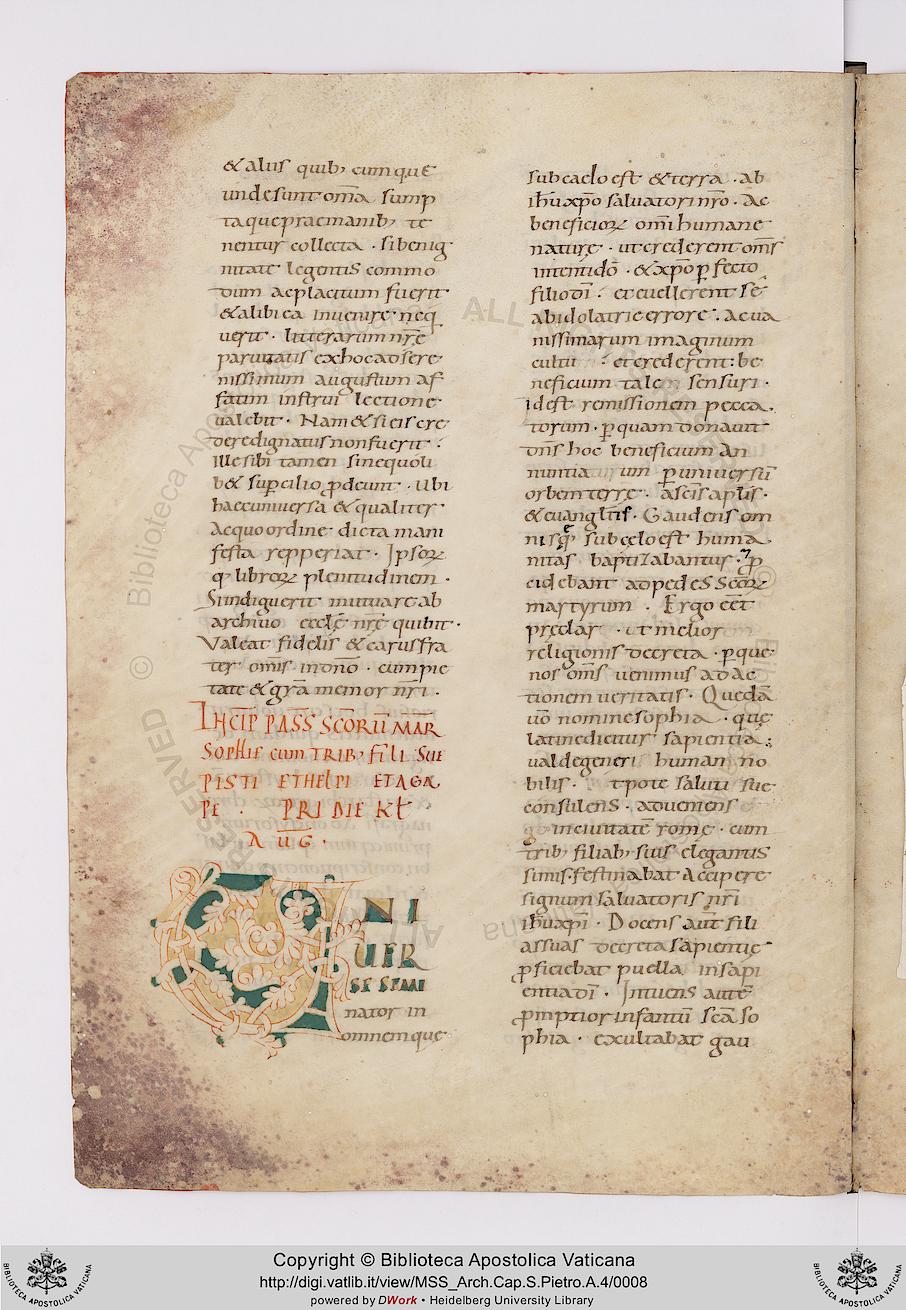 & aliis quib; cumque
unde sunt om̄a sump
taque prae manib; te
nentur collecta · si benig
nitate legentis commo
dum ac placitum fuerit
& alibi ea invenire neq
uerit · litterarum nr̄ę
paruitatis ex hoc ad sere
nissimum augustum af
fatum instrui lectione
ualebit · Nam & si eis cre
dere dignatus non fuerit ·
Ille sibi tamen sine quoli
b& supercilio ꝓdeunt · Ubi
haec uniuersa & qualiter
ac quo ordine dicta mani
festa repperiat · Ipsoꝝ
q; libroꝝ plenitudinem ·
Sin diguerit mutuare ab
archiuo eccle nr̄ę quibit ·
Valeat fidelis & carus fra
ter om̄is in dn̄o · cum pie
tate & gr̄a memor nr̄i ·
INCIP PASS SCŌRŪ MAR
SOPHIE CUM TRIB; FILI SUE
PISTI ET HELPI ET AGA
PE · PRIDIE KL
AUG ·
UNI
UER
SE SEMI
nator in
omnemque
sub caelo est & terra · ab
ih̄u xp̄o saluatori nr̄o · Ac
beneficioꝝ om̄i humane
naturę · ut crederent om̄s
intenti dō · & xp̄o ꝑfecto
filio dī · et euellerent se
ab idolatrie errore · ac ua
nissimarum imaginum
cultu · et crederent: be
neficium tale sensuri ·
id est remissionem pecca
torum · ꝑ quam donauit
dn̄s hoc beneficium An
nuntia um ꝑ uniuersū
orbem terrę · a sc̄is aplis ·
& euanglīīs · Gaudens om
nisq; sub cęlo est huma
nitas baptizabantus · 7 ꝓ
cidebant ad pedes Scōꝝ
martyrum · Ergo cēt
pręclar · ut melior
religionis decreta · ꝑque
nos om̄s uenimus ad ac
tionem ueritatis · Quedā
uō nomine sophia · quę
latine dicitur sapientia ;
ualde generi human no
bilis · tpote saluti suę
consulens · adueniens
in ciuitatē romę · cum
trib; filiab; suis elegantis
simis · festinabat Accipere
signum saluatoris nr̄i
ih̄u xpī · Docens aut̄ fili
as suas decreta sapientię ·
ꝓficiebat puella in sapi
entia dī · Intuens autē
ꝓmptior infantū sc̄a so
phia · exultabat gau
Copyright © Biblioteca Apostolica Vaticana
http://digi.vatlib.it/view/MSS_Arch.Cap.S.Pietro.A.4/0008
powered by DWork • Heidelberg University Library